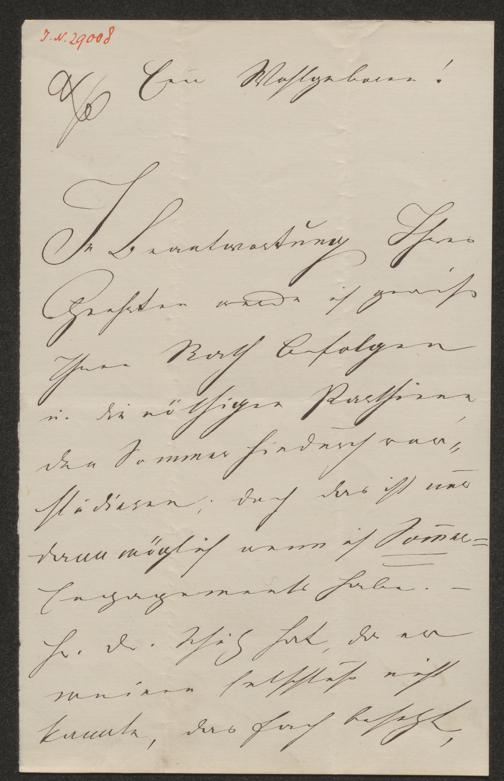 I.N. 29008
Euer Wohlgeboren!
In Beantwortung Ihres
Geehrten werde ich gewiß
Ihren Rath befolgen
u. die nöthigen Parthieen
den Sommer hindurch vor„
studieren; doch das ist nur
dann möglich wenn ich Sommer=
Engagements habe. –
H. Dr. hat, da er
meinen Entschluß nicht
kannte, das Fach besetzt,